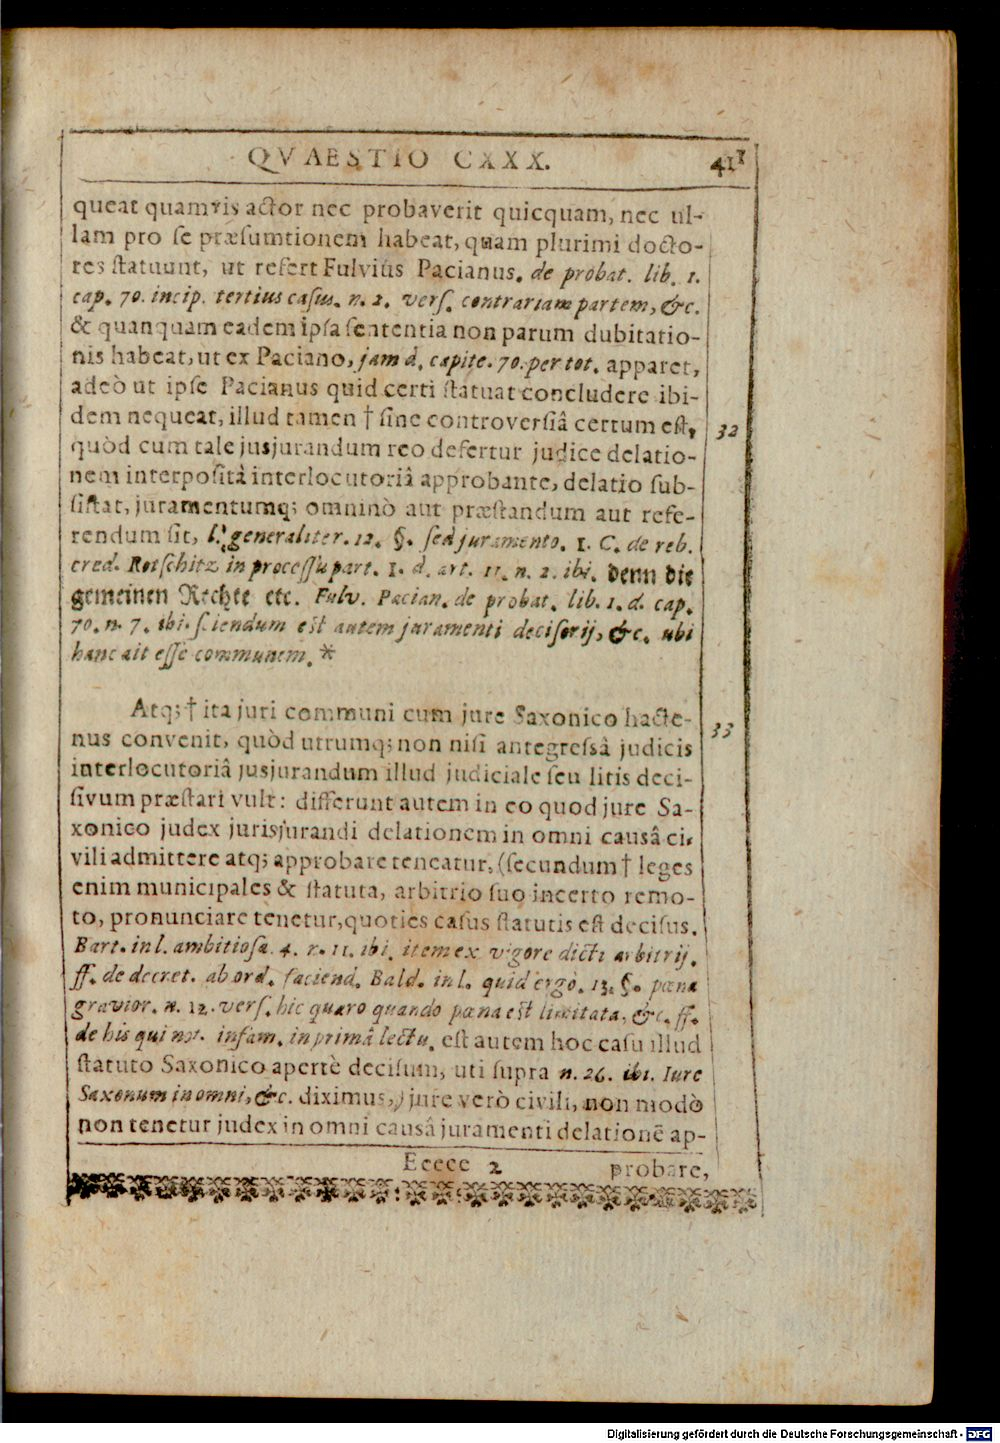 QVAESTIO CXXX. 411
queat quamvis actor nec probaverit quicquam, nec ul-
lam pro se præsumtionem habeat, quam plurimi docto-
res statuunt, ut refert Fulvius Pacianus. de probat. lib. 1.
cap. 70. incip. tertius casus. n. 2. vers. contrariam partem, &c.
& quanquam eadem ipsa sententia non parum dubitatio-
nis habeat, ut ex Paciano, jam d. capite. 70. per tot. apparet,
adeò ut ipse Pacianus quid certi statuat concludere ibi-
dem nequeat, illud tamen † sine controversiâ certum est, 32
quòd cum tale jusjurandum reo defertur judice delatio-
nem interpositâ interlocutoriâ approbante, delatio sub-
sistat, juramentumq; omninò aut præstandum aut refe-
rendum sit, l. generaliter. 12. §. sed juramento. 1. C. de reb.
cred. Rotschitz in processu part. 1. d. art. 11. n. 2. ibi. denn die
gemeinen Rechte etc. Fulv. Pacian. de probat. lib. 1. d. cap.
70. n. 7. ibi. sciendum est autem juramenti decisorij, &c. ubi
hanc ait esse communem. *
Atq; † ita juri communi cum jure Saxonico hacte- 33
nus convenit, quòd utrumq; non nisi antegressâ judicis
interlocutoriâ jusjurandum illud judiciale seu litis deci-
sivum præstari vult: differunt autem in eo quod jure Sa-
xonico judex jurisjurandi delationem in omni causâ ci-
vili admittere atq; approbare teneatur, (secundum † leges
enim municipales & statuta, arbitrio suo incerto remo-
to, pronunciare tenetur, quoties casus statutis est decisus.
Bart. in l. ambitiosa. 4. n. 11. ibi. item ex vigore dicti arbitrij.
ff. de decret. ab ord. faciend. Bald. in l. quid ergo. 13. §. pœna
gravior. n. 12. vers. hic quæro quando pœna est limitata, &c. ff.
de his qui not. infam. in primâ lectu. est autem hoc casu illud
statuto Saxonico apertè decisum, uti supra n. 26. ibi. Iure
Saxonum in omni, &c. diximus,) jure verò civili, non modò
non tenetur judex in omni causâ juramenti delationē ap-
Eeeee 2 probare,
Digitalisierung gefördert durch die Deutsche Forschungsgemeinschaft - DFG